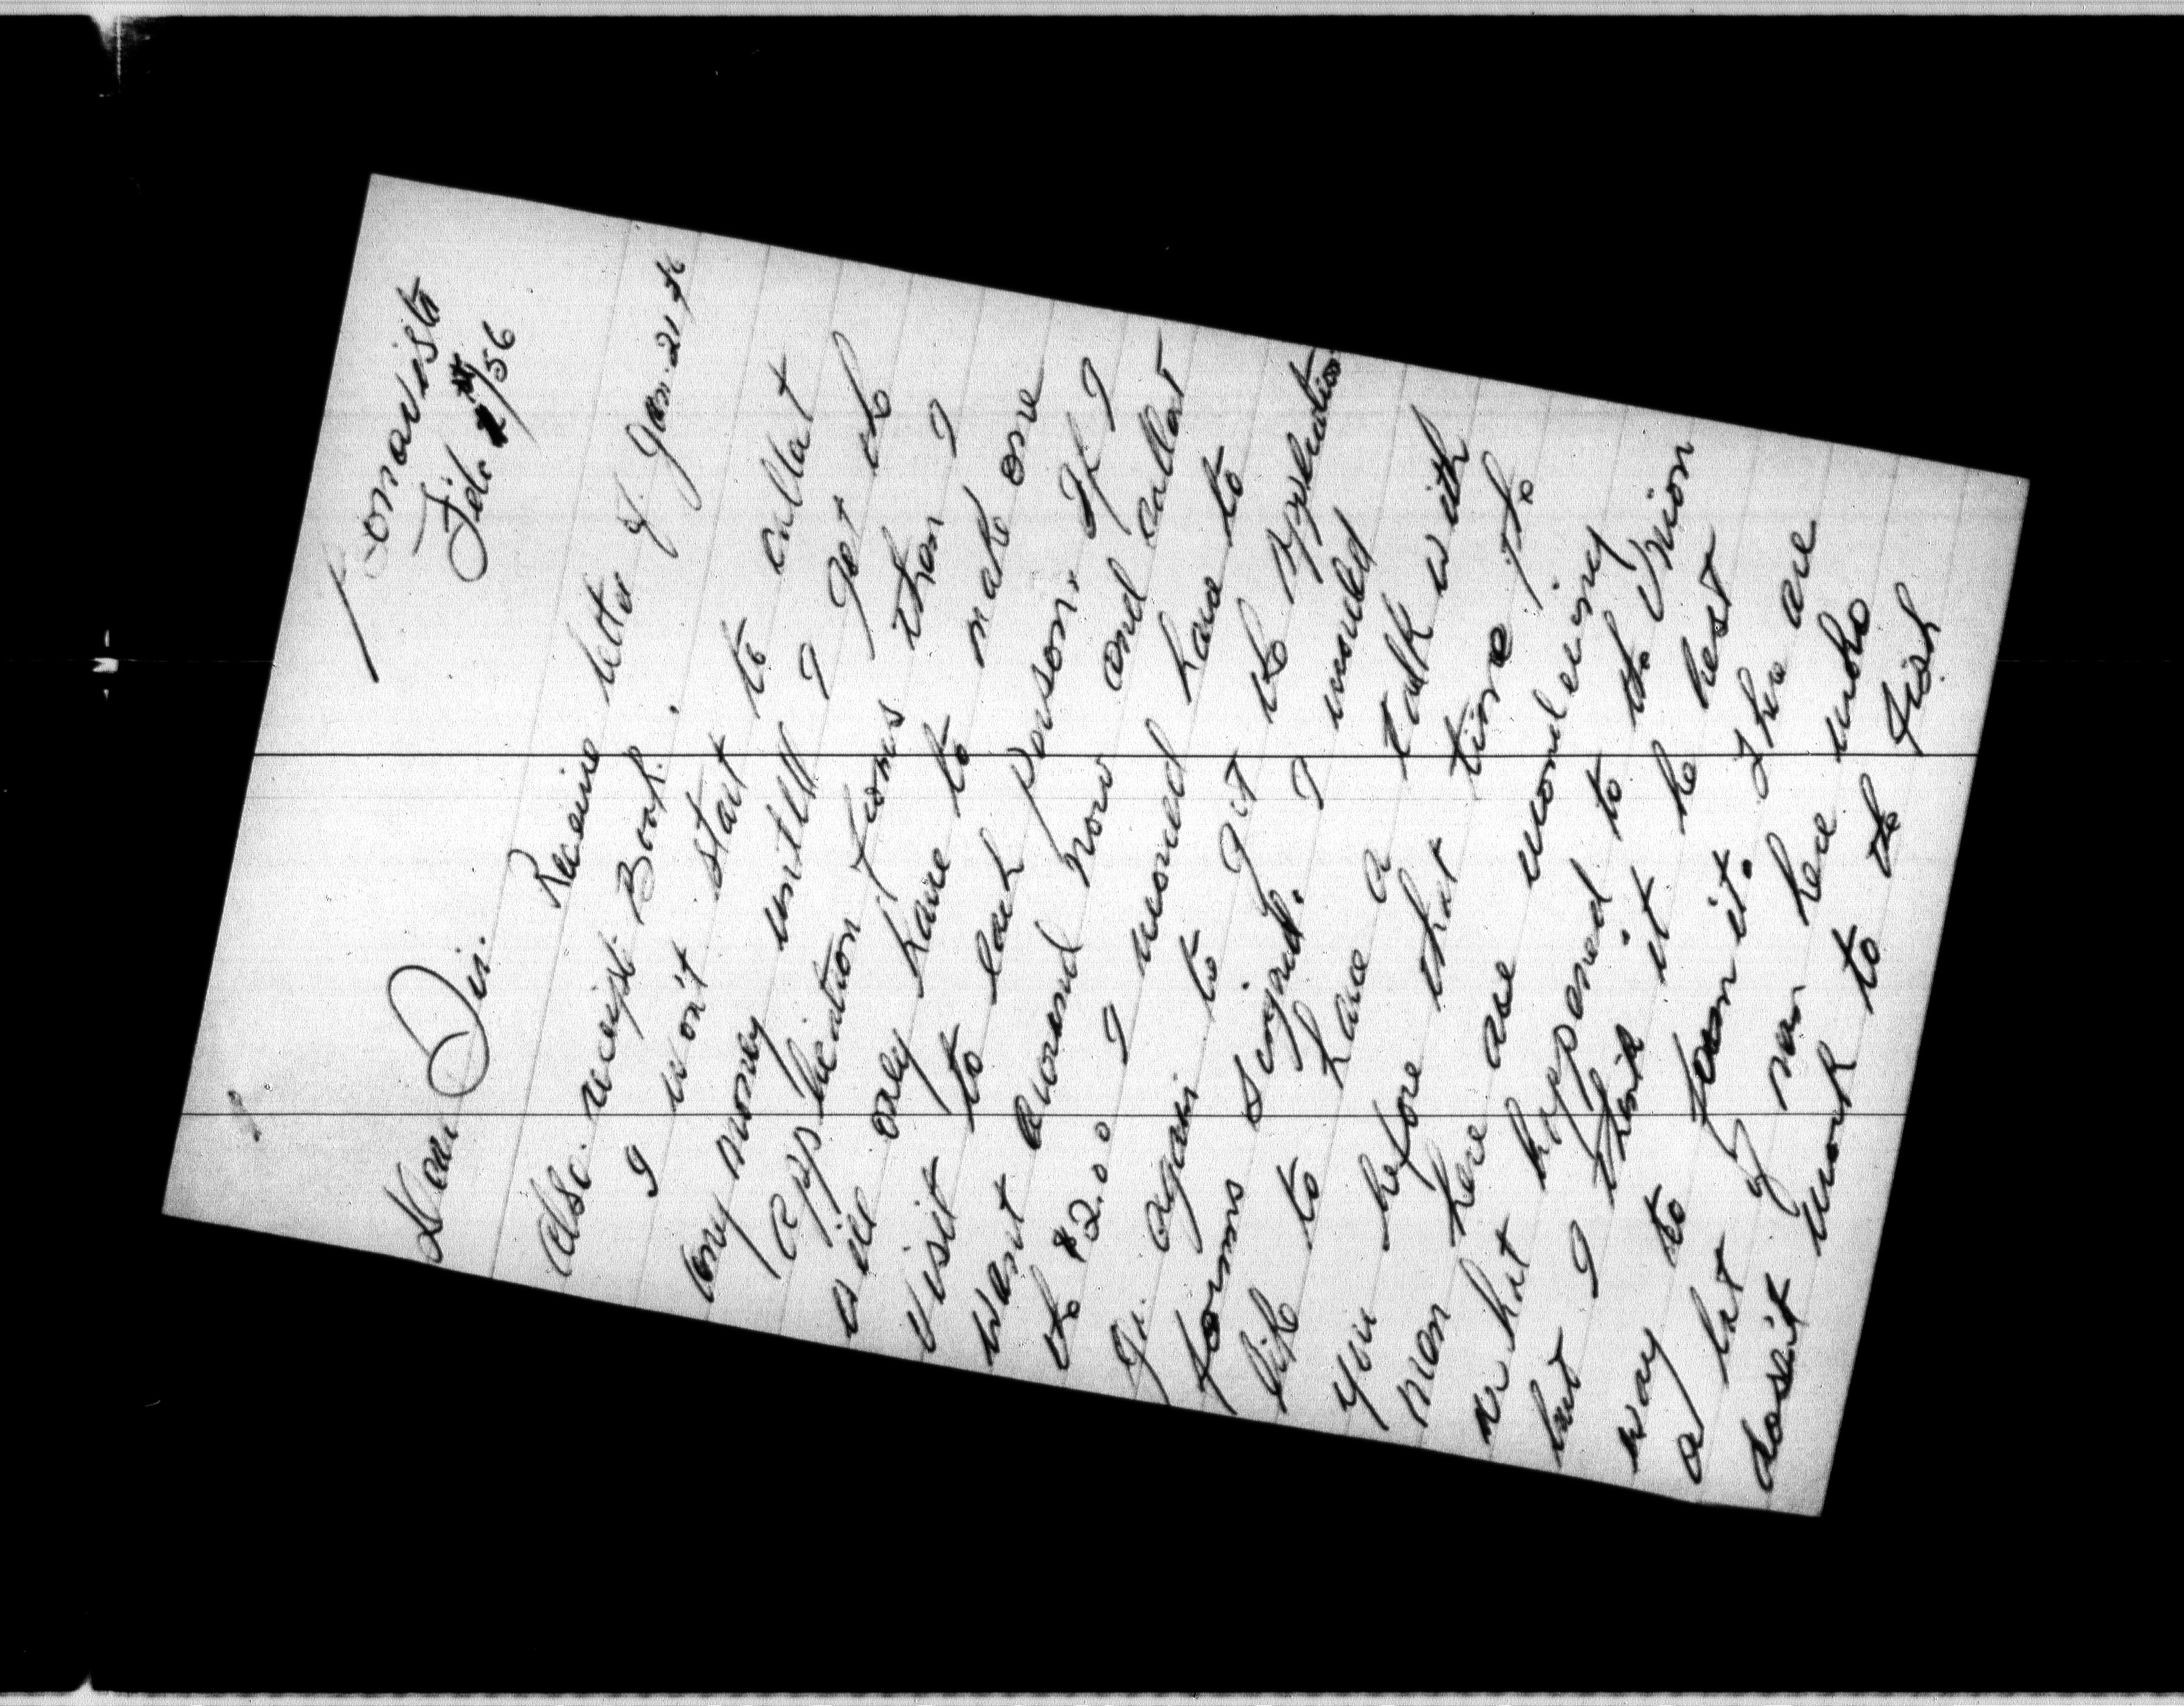 Bonavista
Feb. 56
Dear Sir.
Receive letter of Jan. 21
Also receipt Book.
I won't start to callat
any money untill I get the
Application Forms then I
will only have to make one
visit to each person. If I
want around now and callat
the $2.00 I wound have to
go again to get the Application
forms singed. I would
like to have a talk with
you before that time. The
men here are wondering
what happened to the Union
but I think it he best
way to foam it. There are
a lat of men here who
dosen't work to the fish